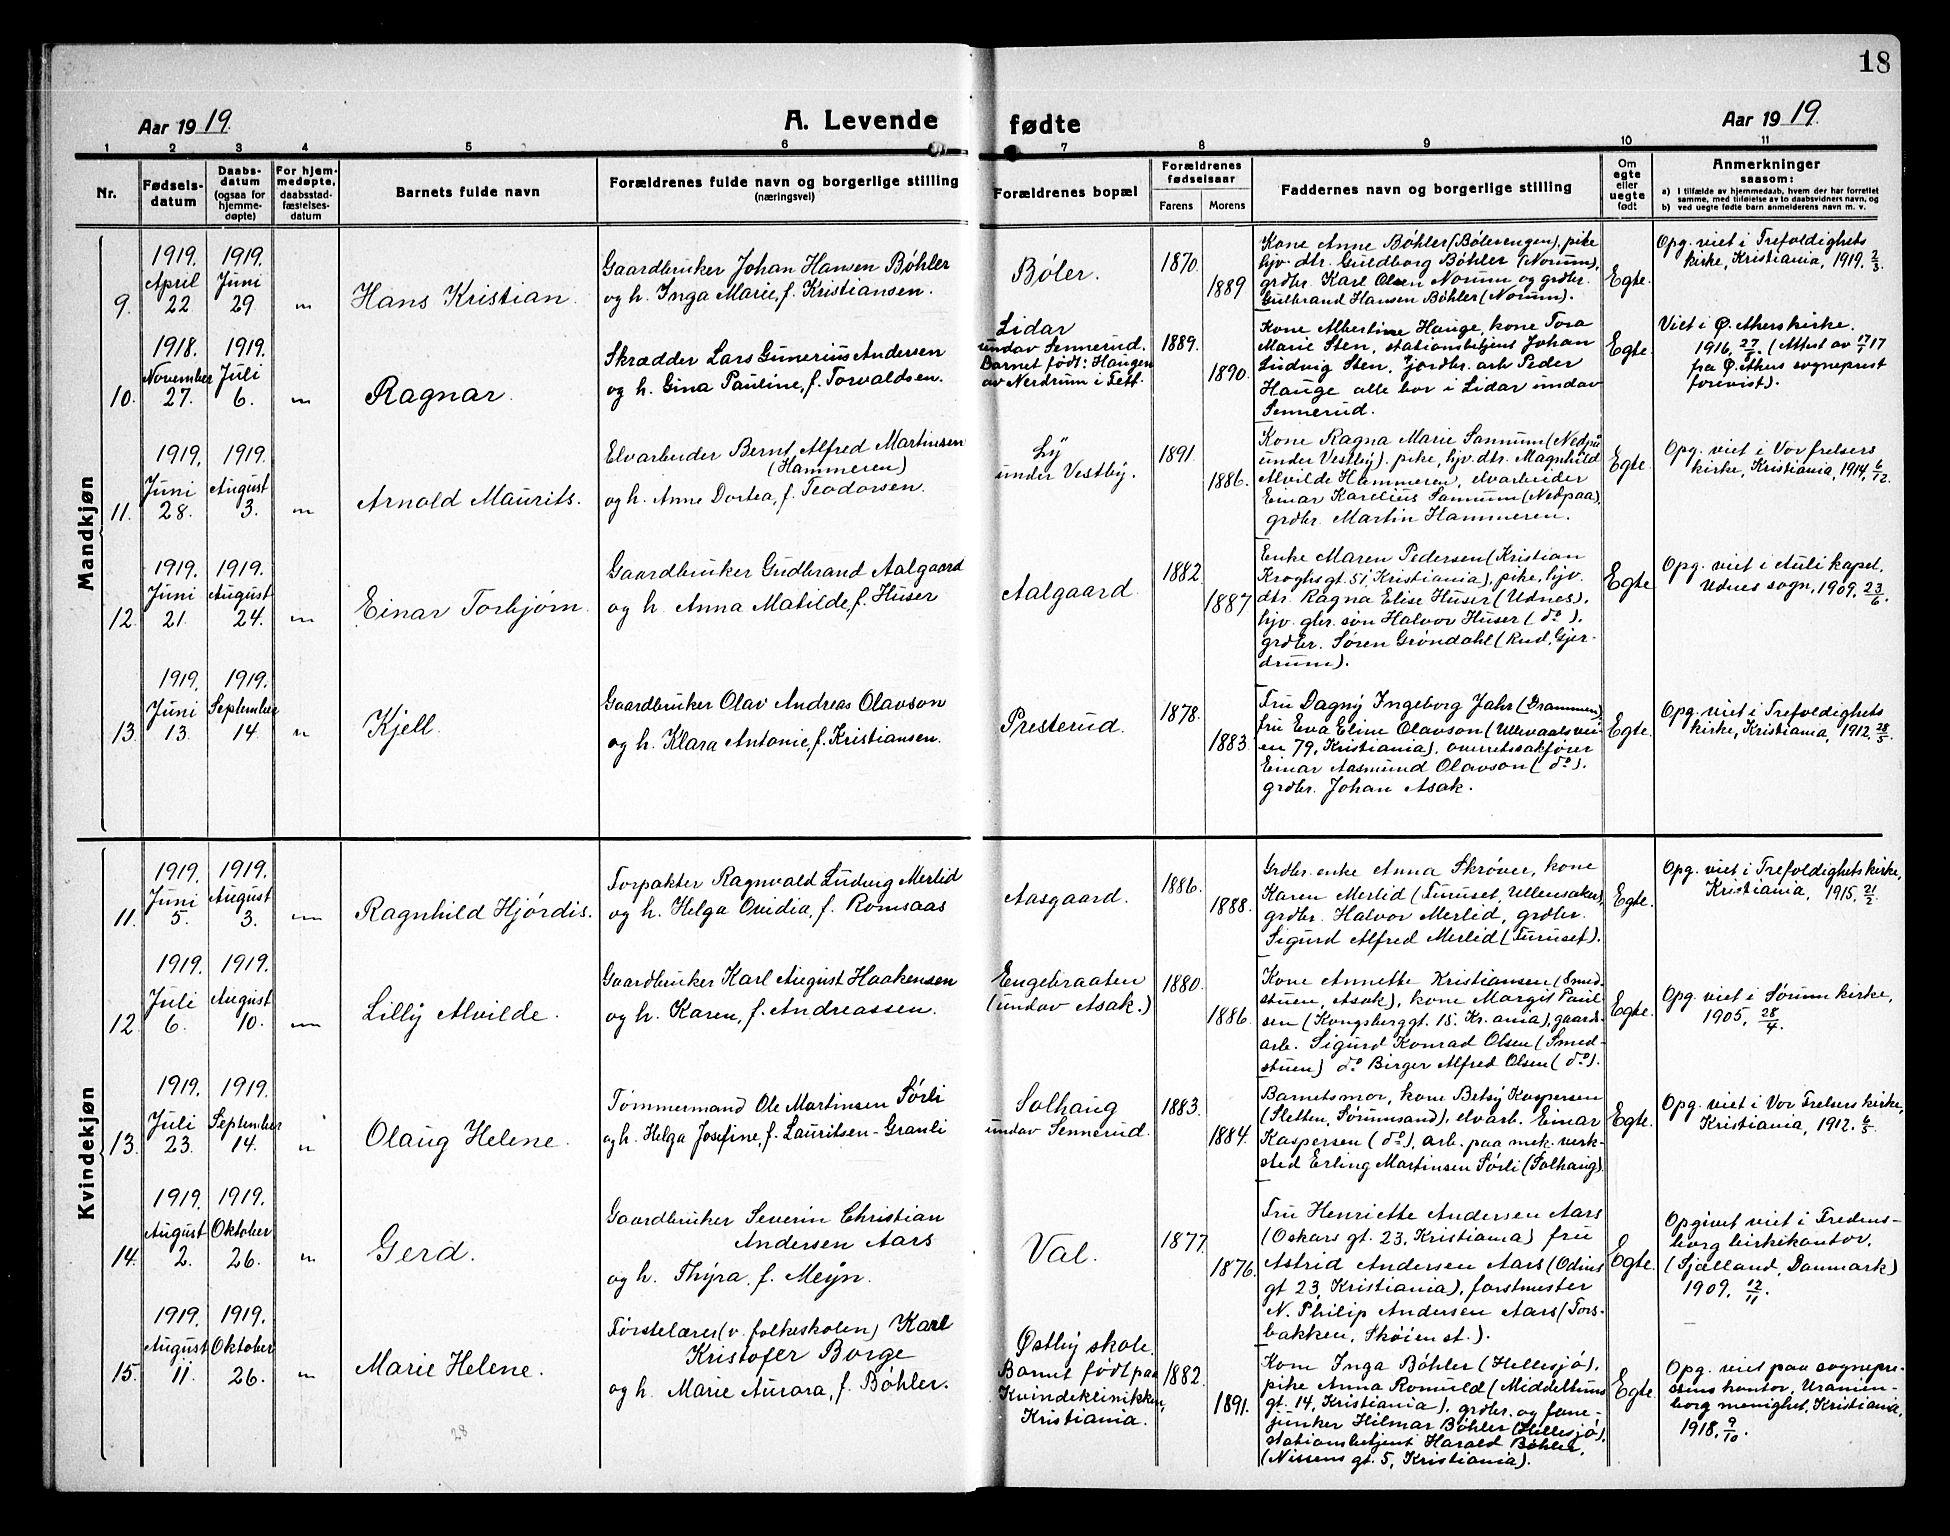 18
Aar 1919.
A. Levende fødte
Aar 1919.
1 2 3 4 5 6 7 8 9 10 11
Nr.
Fødsels-
datum
Daabs-
datum
(ogsaa for
hjemme-
døpte)
For hjem-
medøpte,
daabsstad-
fæstelses-
datum
Barnets fulde navn
Forældrenes fulde navn og borgerlige stilling
(næringsvei)
Forældrenes bopæl
Forældrenes
fødselsaar
Farens
Morens
Faddernes navn og borgerlige stilling
Om
egte
eller
uegte
født
Anmerkninger
saasom:
a) I tilfælde av hjemmedaab, hvem der har forrettet
samme, med tilføielse av to daabsvidners navn, og
b) ved uegte fødte barn anmelderens navn m. v.
Mandkjøn
9.
1919.
April
22
1919.
Juni
29
"
Hans Kristian.
Gaardbruker Johan Hansen Bøhler
og h. Inga Marie, f. Kristiansen.
Bøler.
1870.
1889
Kone Anne Bøhler (Bølerengen), pike
hjv. dtr. Guldborg Bøhler (Norum),
grdbr. Karl Olsen Norum og grdbr.
Gulbrand Hansen Bøhler (Norum).
Egte.
Opg. viet i Trefoldighets
kirke, Kristiania, 1919. 2/3.
10.
1918.
November
27.
1919.
Juli
6.
"
Ragnar.
Skrædder Lars Gunerius Andersen
og h. Gina Pauline, f. Torvaldsen.
Lidar
undav Sennerud.
Barnet født: Haugen
av Nerdrum i Fett.
1889.
1890.
Kone Albertine Hauge, kone Tora
Marie Sten, stationsbetjent Johan
Ludvig Sten, jordbr. arb. Peder
Hauge alle bor i Lidar undav
Sennerud.
Egte.
Viet i Ø. Akers kirke.
1916, 27/11 (Attest av 17/7 17
fra Ø. Akers sogneprest
forevist).
11.
1919.
Juni
28.
1919.
August
3.
"
Arnold Maurits.
Elvarbeider Bernt Alfred Martinsen
(Hammeren)
og h. Anne Dortea, f. Teodorsen.
Ly
under Vestby.
1891.
1886.
Kone Ragna Marie Sannum (Nedpaa
under Vestby), pike, hjv. dtr. Magnhild
Alvilde Hammeren, elvarbeider
Einar Karelius Sannum (Nedpaa),
grdbr. Martin Hammeren.
Egte.
Opg. viet i Vor frelsers
kirke, Kristiania, 1914, 6/12.
12.
1919.
Juni
21.
1919.
August
24.
"
Einar Torbjørn.
Gaardbruker Gudbrand Aalgaard
og h. Anna Matilde, f. Huser
Aalgaard.
1882.
1887
Enke Maren Pedersen (Kristian
Kroghs gt. 51, Kristiania), pike, hjv.
dtr. Ragna Elise Huser (Udnes),
hjv. gbr. søn Halvor Huser (do),
grdbr. Søren Grøndahl (Rud, Gjer-
drum).
Egte
Opg. viet i Auli kapel,
Udnes sogn, 1909, 23/6.
13.
1919.
Juni
13.
1919.
September
14.
"
Kjell.
Gaardbruker Olav Andreas Olavson
og h. Klara Antonie, f. Kristiansen.
Presterud.
1878.
1883.
Fru Dagny Ingeborg Jahr (Drammen),
fru Eva Eline Olavson (Ullevaalsvei-
en 79, Kristiania), overretssakfører
Einar Aasmund Olavson (do),
grdbr. Johan Asak.
Egte.
Opg. viet i Trefoldighets
kirke, Kristiania, 1912. 28/5.
Kvindekjøn
11.
1919.
Juni
5.
1919.
August
3.
"
Ragnhild Hjørdis.
Forpakter Ragnvald Ludvig Merlid
og h. Helga Ovidia, f. Romsaas
Aasgaard.
1886.
1888.
Grdbr. enke Anna Skrøver, kone
Karen Merlid (Furuset, Ullensaker),
grdbr. Halvor Merlid, grdbr.
Sigurd Alfred Merlid (Furuset).
Egte.
Opg. viet i Trefoldighets kirke,
Kristiania, 1915, 21/2.
12.
1919.
Juli
6.
1919.
August
10.
"
Lilly Alvilde.
Gaardbruker Karl August Haakensen
og h. Karen, f. Andreassen.
Engebraaten
(undav Asak.)
1880.
1886.
Kone Annette Kristiansen (Smed-
stuen, Asak), kone Margit Paul-
sen (Kongsberggt. 15. Kr.ania), gaards-
arb. Sigurd Konrad Olsen (Smed-
stuen) do Birger Alfred Olsen (do).
Egte.
Opg. viet i Sørum kirke,
1905, 28/4.
13.
1919.
Juli
23.
1919.
September
14.
"
Olaug Helene.
Tømmermand Ole Martinsen Sørli
og h. Helga Josefine, f. Lauritsen-Granli
Solhaug
undav Sennerud.
1883.
1884.
Barnets mor, kone Betsy Kaspersen
(Sletten, Sørumsand), elvarb. Einar
Kaspersen (do), arb. paa mek. verk-
sted Erling Martinsen Sørli (Solhaug)
Egte.
Opg. viet i Vor Frelsers kirke,
Kristiania, 1912. 6/5.
14.
1919.
August
2.
1919.
Oktober
26.
"
Gerd.
Gaardbruker Severin Christian
Andersen Aars
og h. Thyra, f. Meyn.
Val.
1877.
1876.
Fru Henriette Andersen Aars
(Oskars gt. 23, Kristiania) fru
Astrid Andersen Aars (Odins
gt 23, Kristiania), forstmester
N. Philip Andersen Aars (Fors-
bakken, Skøien st.).
Egte.
Opgivet viet i Fredens-
borg birkekontor,
(Sjælland, Danmark)
1909. 12/11.
15.
1919.
August
11.
1919.
Oktober
26.
"
Marie Helene.
Førstelærer (v. folkeskolen) Karl
Kristofer Borge
og h. Marie Aurora, f. Bøhler.
Østby skole.
Barnet født paa
Kvindeklinikken,
Kristiania.
1882.
1891.
Kone Inga Bøhler (Hellesjø),
pike Anna Romuld (Middelthuns
gt. 14, Kristiania), grdbr. og fane-
junker Hilmar Bøhler (Hellesjø),
stationsbetjent Harald Bøhler,
(Nissens gt. 5, Kristiania).
Egte.
Opg. viet paa sognepre-
stens kontor, Uranien-
borg menighet, Kristiania,
1918, 9/10.
28